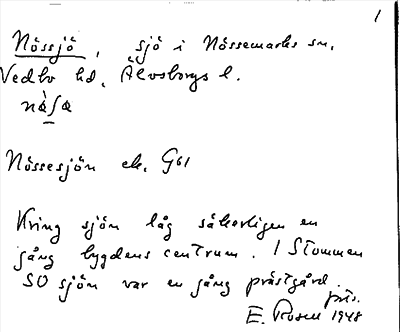 1
Nössjö, sjö i Nössemarks sn,
Vedbo hd, Älvsborgs l.
Nössesjön ek. G61
Kring sjön låg säkerligen en
gång bygdens centrum. I Stommen
SO sjön var en gång prästgård.
E. Rosell 1948